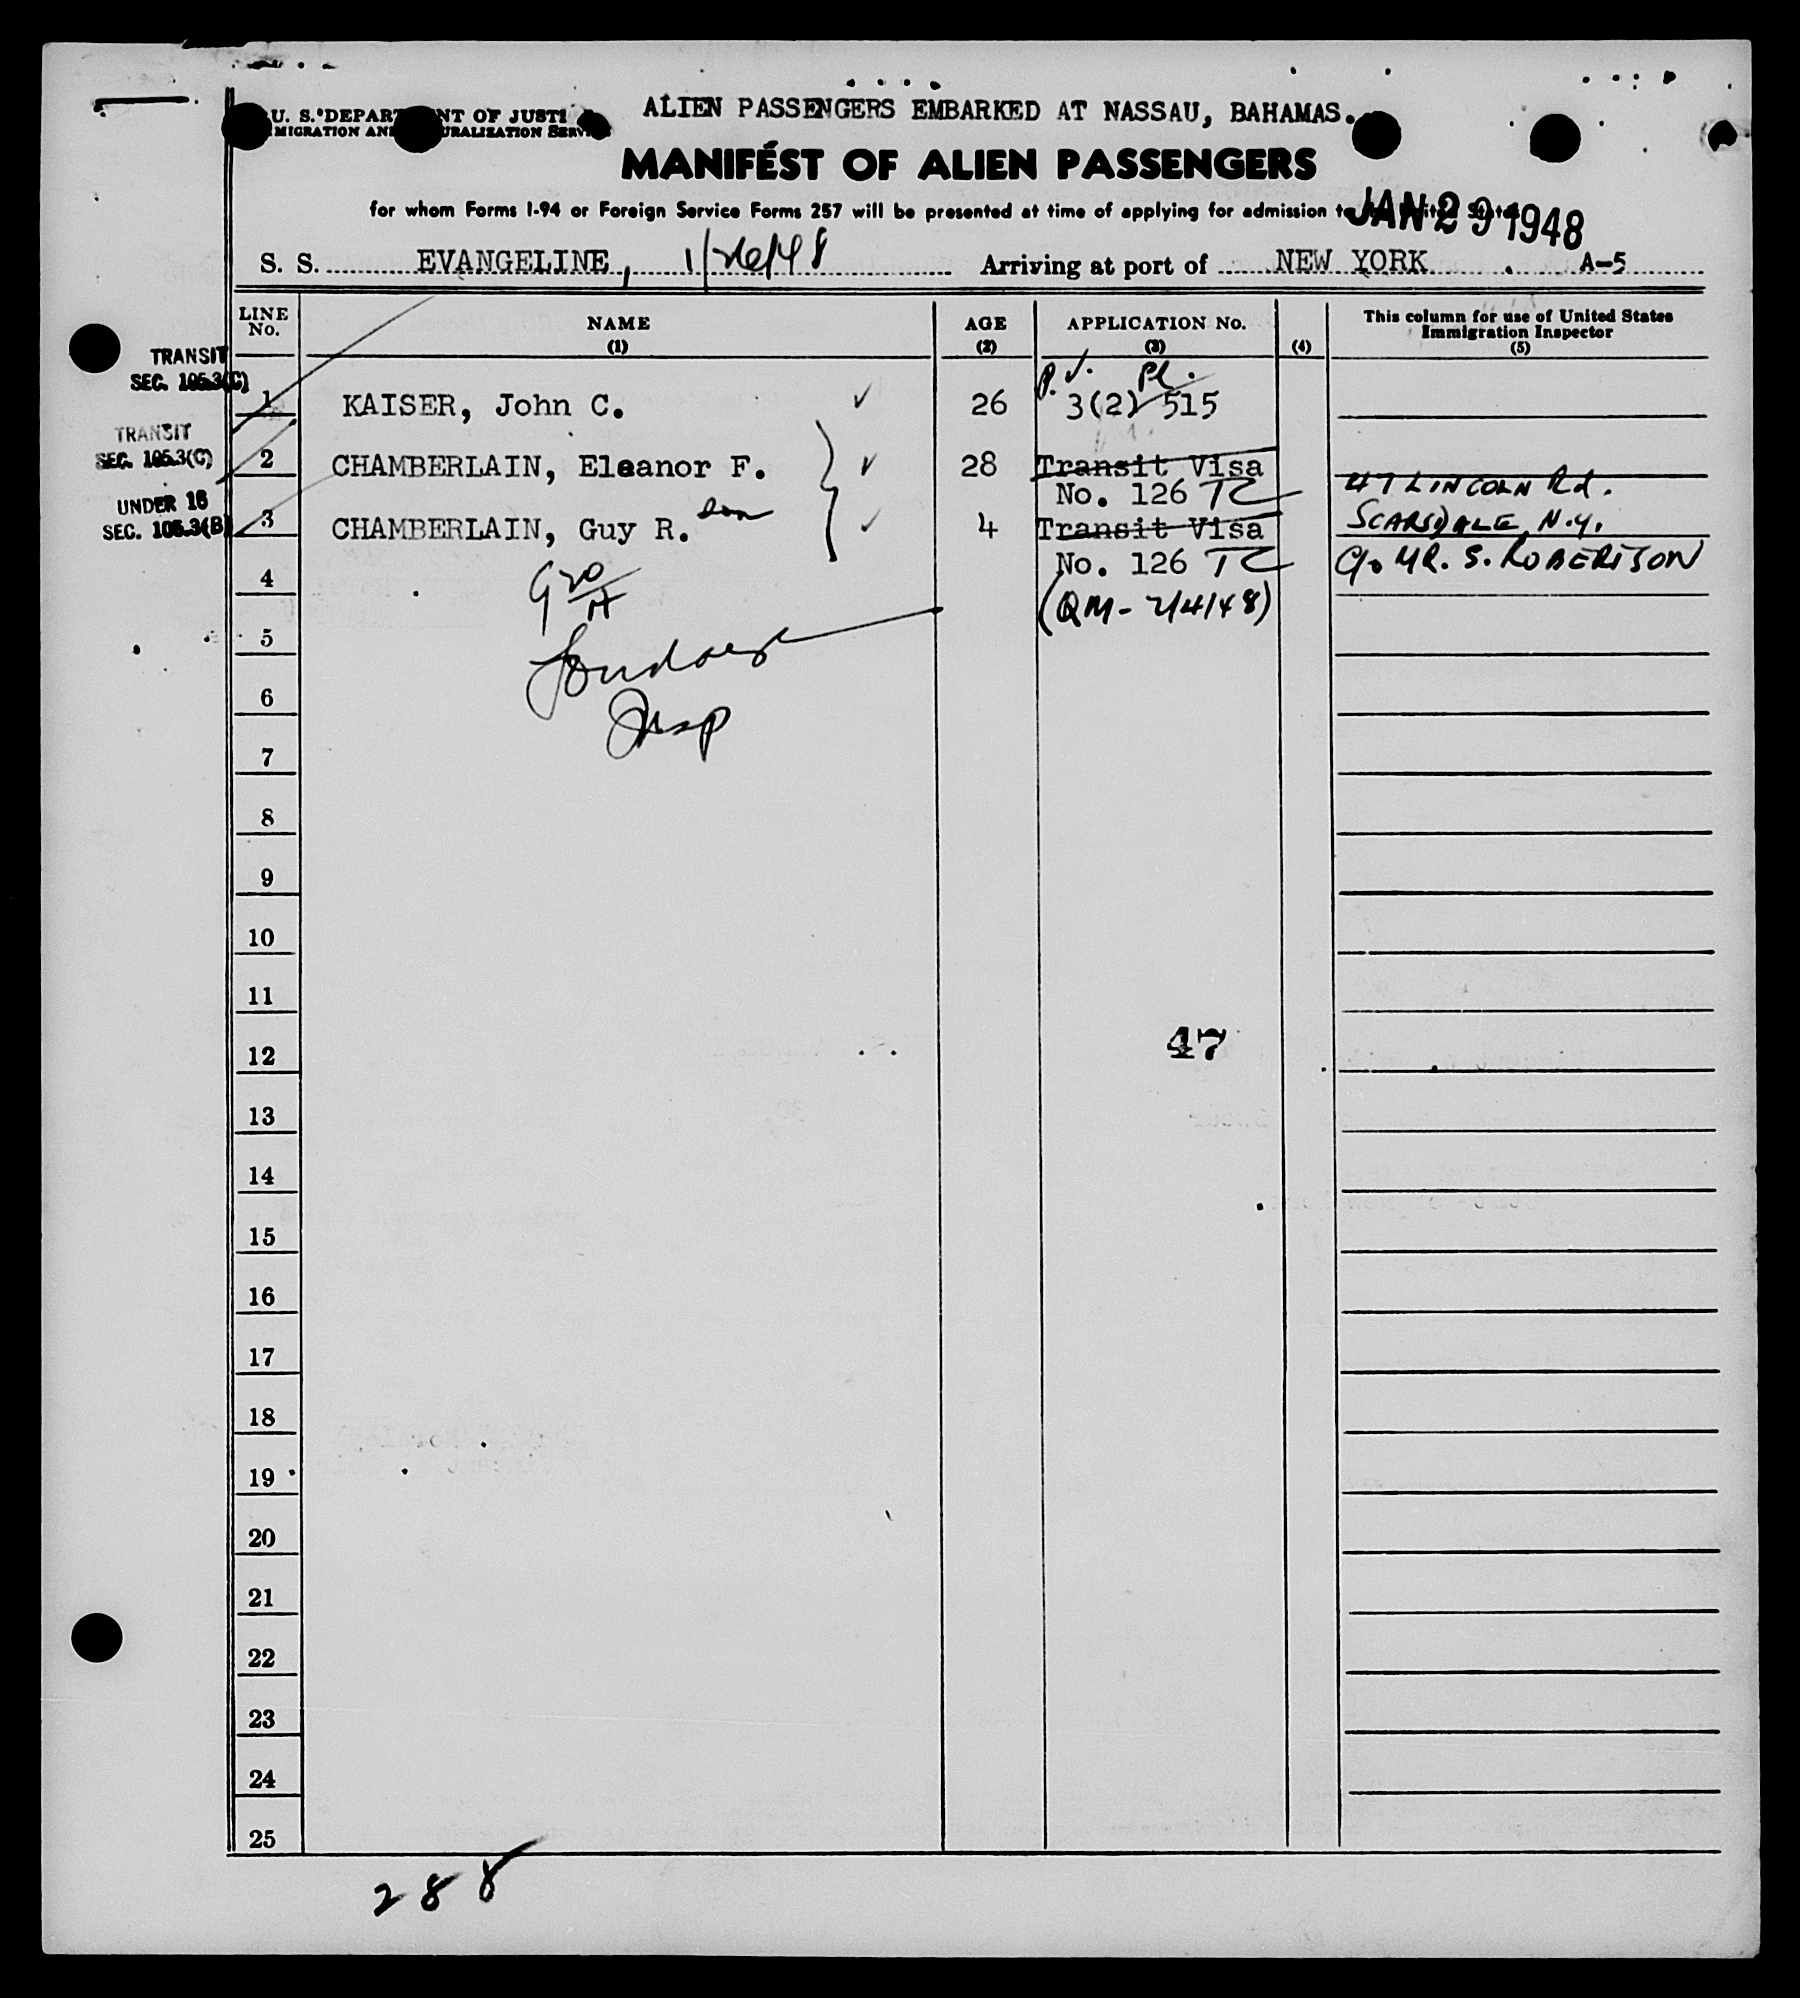 ALIEN PASSENGERS EMBARKED AT NASSAU, BAHAMAS.
U. S. DEPAR NT OF JUSTI
MIGRATION AN URALIZATION SERV
MANIFEST OF ALIEN PASSENGERS
for whom Forms I-94 or Foreign Service Forms 257 will be presented at time of applying for admission to
JAN 29 1948
S. S. EVANGELINE, 1/26/48 Arriving at port of NEW YORK. A-5
LINE No. NAME (1) AGE (2) APPLICATION No. (3) (4) This column for use of United States Immigration Inspector (5)
TRANSIT
SEC. 105.3(C)
P. V. Pl.
1 KAISER, John C. 26 3(2) 515
TRANSIT
SEC. 105.3(C)
2 CHAMBERLAIN, Eleanor F. 28 Transit Visa
No. 126 TC 47 LINCOLN Rd.
UNDER 16
SEC. 105.3(B)
3 CHAMBERLAIN, Guy R. son 4 Transit Visa SCARSDALE, N.Y.
No. 126 TC C/o MR. S. ROBERTSON
4 (QM - 2/4/48)
5
6
Insp
7
8
9
10
11
47
12
13
14
15
16
17
18
19
20
21
22
23
24
25
288